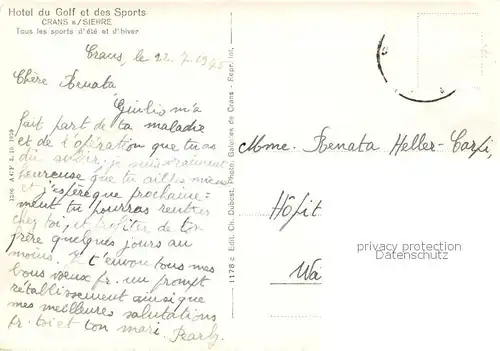 Hotel du Golf et des Sports
CRANS s/SIERRE
Tous les sports d'été et d'hiver
Crans, le 22.7.1945
Chère Renata,
Giulio m'a
fait part de ta maladie
et de l'opération que tu as
dû avoir, je suis vraiment
heureuse que tu ailles mieux
et j'espère que prochaine=
ment tu pourras rentrer
chez toi, et profiter de ton
frère quelques jours au
moins. Je t'envoie tous mes
bons vœux pr. un prompt
rétablissement ainsi que
mes meilleures salutations
pr. toi et ton mari. Pearly
1296 A & P 2.10 1939
11178 z Edit. Ch. Dubost, Photo. Galeries de Crans - Repr. int.
Mme. Renata Heller-Carpi,
Hôpit
Wä
privacy protection
Datenschutz